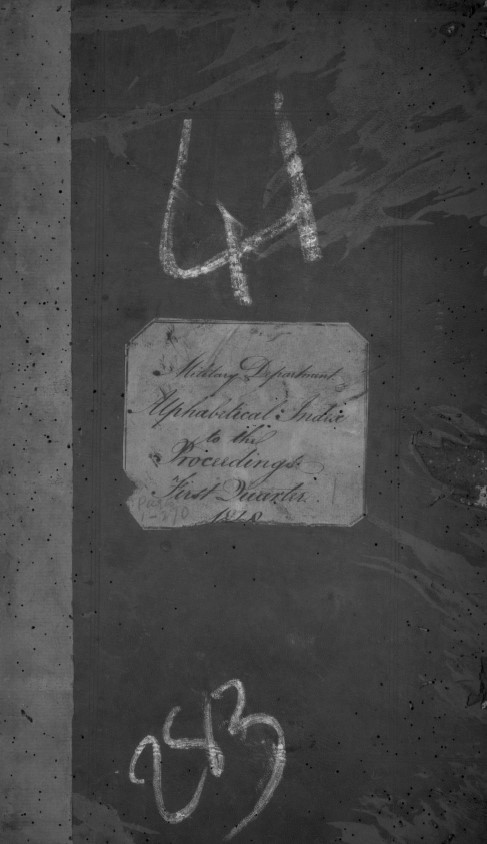 Military Department
Alphabetical Index
to the
Proceedings
First Quarter
283